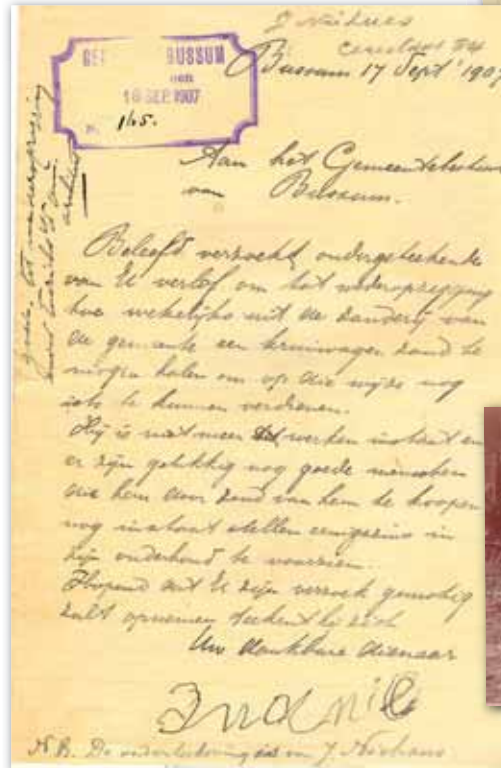 J Niehues
Bussum 17 Sept 1907
GE BUSSUM
18 SEP. 1907
No. 1115.
Aan het Gemeentebestuur
van Bussum.
Beleefd verzoekt ondergeteekende
van U verlof om tot wederopzegging
toe wekelijks uit de zanderij van
de gemeente een kruiwagen zand te
mogen halen om op die wijze nog
iets te kunnen verdienen.
Hij is niet meer tot werken instaat en
er zijn gelukkig nog goede menschen
die hem door zand van hem te koopen
nog instaat stellen eenigzins in
zijn onderhoud te voorzien.
Hopend dat U zijn verzoek gunstig
zult opnemen teekent hij zich
Uw dankbare dienaar
N.B. De onderteekening is van J. Niehaus